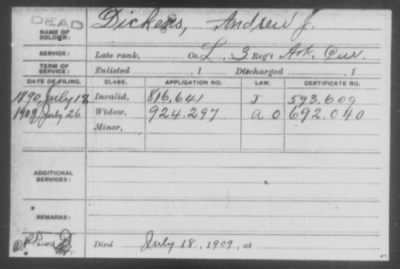 DEAD
NAME OF SOLDIER: Dickens, Andrew J.
SERVICE: Late rank, Co. L, 3 Reg't Ark. Cav.
TERM OF SERVICE: Enlisted , 1 Discharged , 1
DATE OF FILING. CLASS. APPLICATION NO. LAW. CERTIFICATE NO.
1890, July 18 Invalid, 816.641 J 593.609
1909, July 26 Widow, 924.297 a O 692.040
Minor,
ADDITIONAL SERVICES:
REMARKS:
Died July 18, 1909, at